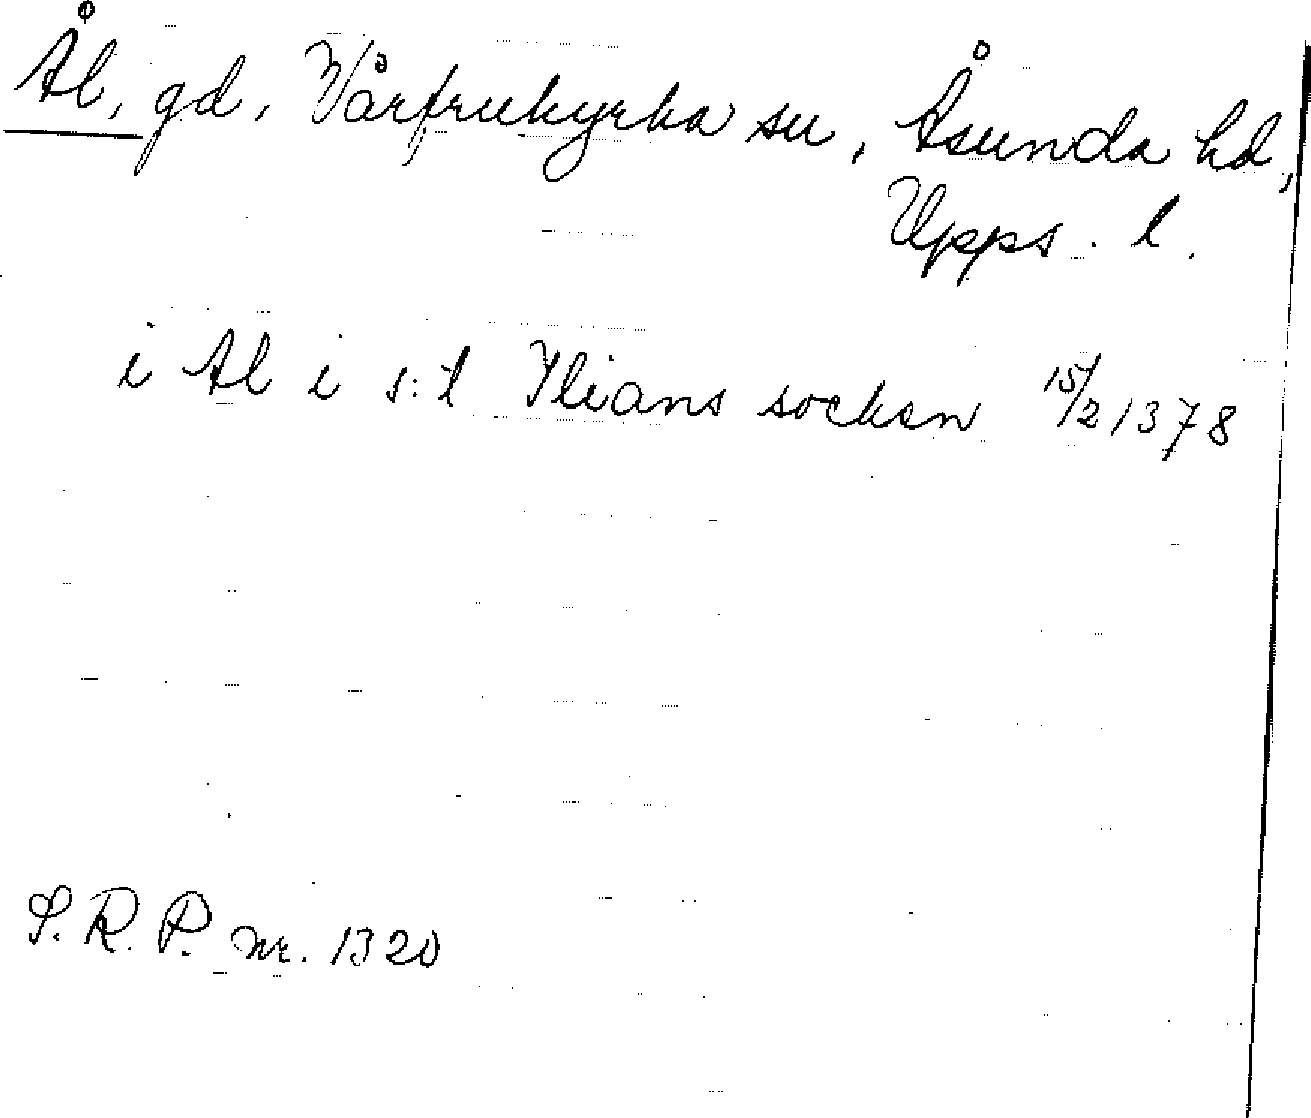 Ål, gd, Vårfrukyrka sn, Åsunda hd,
Upps. l.
i Al i s:t Ilians socken 15/2 1378
S.R.P. nr. 1320